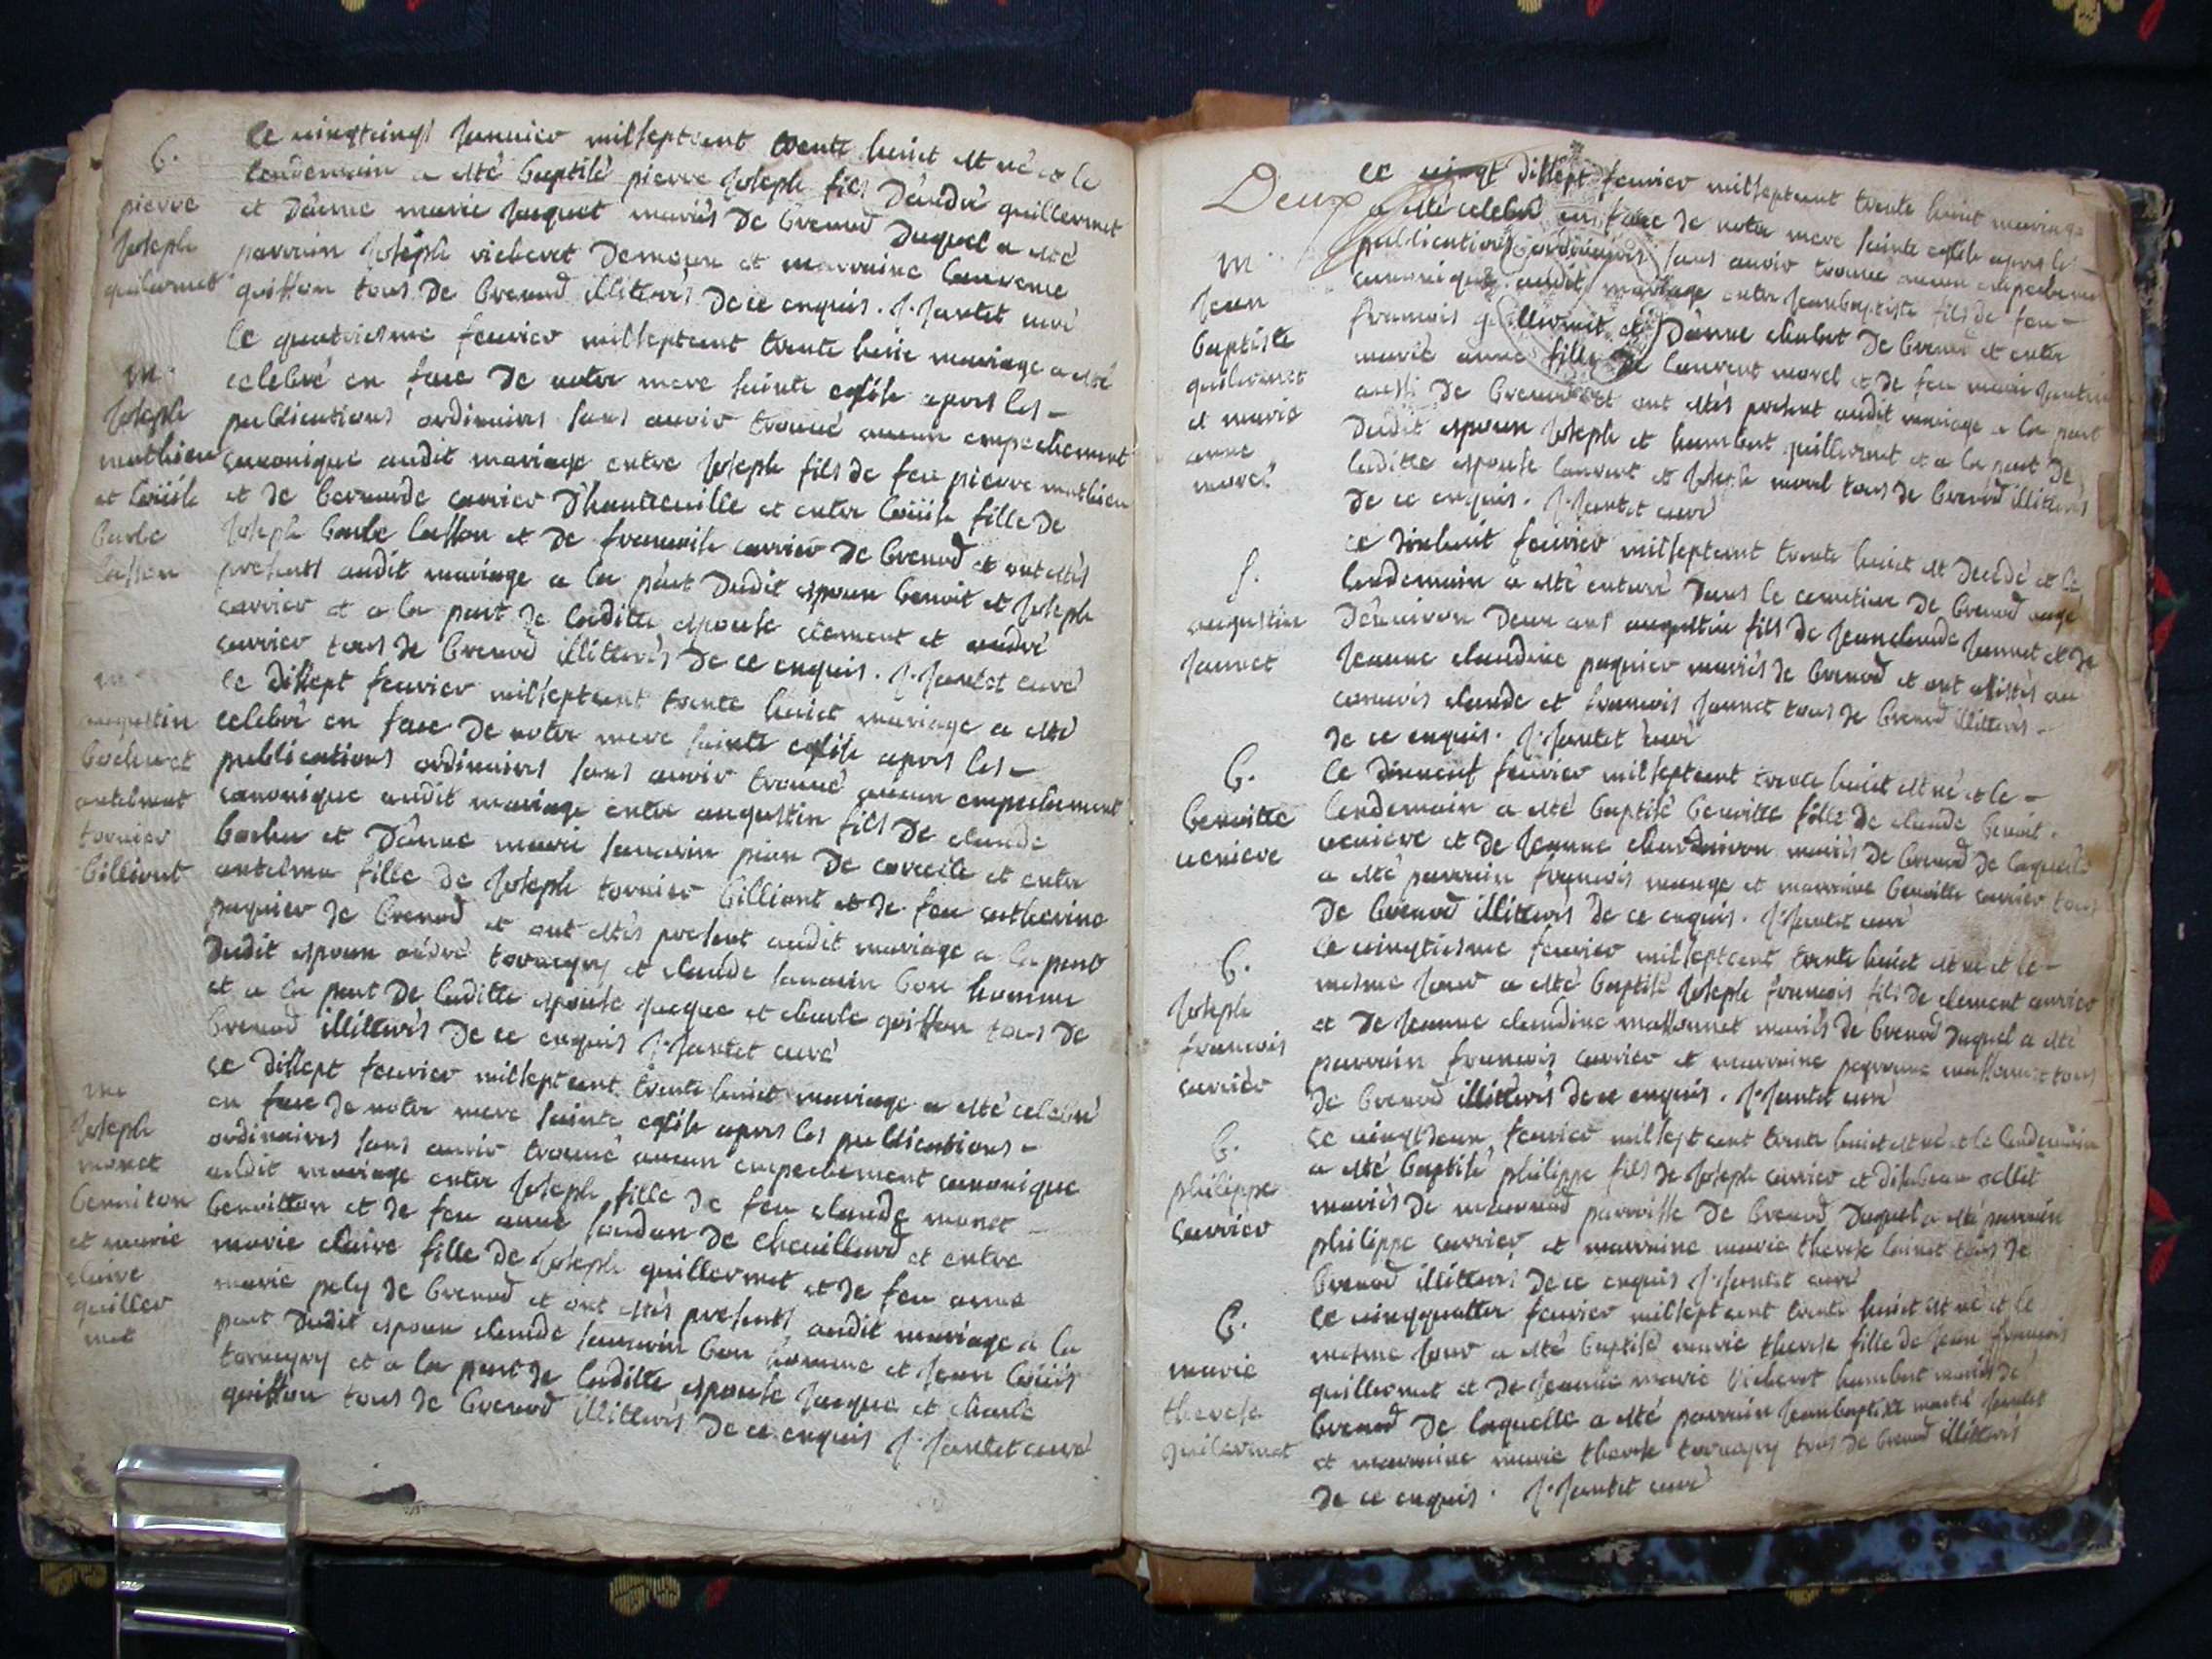 b.
pierre
Joseph
guilermet
le vingtcinq Janvier milseptcent trente huict est né et le
lendemain a esté baptisé pierre Joseph fils D'andré guillermet
et D'anne marie Jaquet mariés de brenod Duquel a esté
parrain Joseph vieberet Demoeur et marraine laurence
goiffon tous De brenod illiterés De ce enquis. J. Jantet curé
m.
Joseph
mathieu
et Loüise
barbe
lasson
le quatriesme fevrier milseptcent trente huic mariage a esté
celebré en face De notre mere sainte eglise apres les
publications ordinaires sans avoir trouvé aucun empechement
canonique audit mariage entre Joseph fils de feu pierre mathieu
et de bernarde carrier D'hauteville et entre Loüise fille De
Joseph barbe lasson et De francoise carrier De brenod et ont estés
presents audit mariage a la part Dudit espoux benoit et Joseph
carrier et a la part de laditte espouse clement et andré
carrier tous de brenod illiterés De ce enquis. J. Jantet curé
m.
augustin
bochu et
antelmat
tornier
billiont
le disept fevrier milseptcent trente huict mariage a esté
celebré en face De notre mere sainte eglise apres les
publications ordinaires sans avoir trouvé aucun empechement
canonique audit mariage entre augustin fils De claude
bochu et D'anne marie savarin pion De corcelle et entre
antelma fille de Joseph tornier billiont et de feu catherine
paquier de brenod et ont estés present audit mariage a la part
Dudit espoux andré torneyry et claude savarin bon homme
et a la part De laditte espouse Jacque et charle goiffon tous de
brenod illiterés De ce enquis J. Jantet curé
m
Joseph
monet
benoiton
et marie
claire
guiller
met
le disept fevrier milseptcent trente huict mariage a esté celebré
en face De notre mere sainte eglise apres les publications
ordinaires sans avoir trouvé aucun empechement canonique
audit mariage entre Joseph fille de feu claude monet
benoitton et de feu anne landon De chevillard et entre
marie claire fille de Joseph guillermet et de feu anne
marie pely de brenod et ont estés presents audit mariage a la
part Dudit espoux claude savarin bon homme et Jean Loüis
torneyry et a la part de laditte espouse Jacque et charle
goiffon tous de brenod illiterés De ce enquis J. Jantet curé
Deux
m.
Jean
baptiste
guilermet
et marie
anne
morel
le vingt disept fevrier milseptcent trente huict mariage
a esté celebré en face de notre mere sainte eglise apres les
publications ordinaires sans avoir trouvé aucun empechement
canonique audit mariage entre Jeanbaptiste fils de feu
francois guillermet et D'anne chabot De brenod et entre
marie anne fille de laurent morel et de feu marie Jantet
aussi De brenod et ont estés present audit mariage a la part
Dudit espoux Joseph et humbert guillermet et a la part De
laditte espouse laurent et Joseph morel tous de brenod illiterés
De ce enquis. J. Jantet curé
s.
augustin
Jannet
le dixhuit fevrier milseptcent trente huict est Decedé et le
lendemain a esté enterré Dans le cemetiere De brenod agé
D'environ Deux ans augustin fils de Jeanclaude Jannet et de
Jeanne claudine paquier mariés de brenod et ont assistés au
convois claude et francois Jannet tous de brenod illiterés
de ce enquis. J. Jantet curé
b.
benoitte
veniere
le dixneuf fevrier milseptcent trente huict est né et le
lendemain a esté baptisé benoitte fille de claude benoit
veniere et de Jeanne chardoiron mariés de brenod de laquelle
a esté parrain francois monge et marraine benoitte carrier tous
De brenod illiterés de ce enquis. J. Jantet curé
b.
Joseph
francois
carrier
le vingtiesme fevrier milseptcent trente huict est né et le
mesme Jour a esté baptisé Joseph francois fils de clement carrier
et De Jeanne claudine massonnet mariés de brenod Duquel a esté
parrain francois carrier et marraine pernone massonnet tous
de brenod illiterés de ce enquis. J. Jantet curé
b.
philippe
carrier
le vingtdeux fevrier milseptcent trente huict est né et le lendemain
a esté baptisé philippe fils de Joseph carrier et disabeau ollet
mariés de macconod parroisse De brenod Duquel a esté parrain
philippe carrier et marraine marie therese loinet tous de
brenod illiterés De ce enquis J. Jantet curé
b.
marie
therese
guilermet
le vingqquatre fevrier milseptcent trente huict est né et le
mesme Jour a esté baptisé marie therese fille de Jean francois
guillermet et De Jeanne marie vieberet humbert mariés de
brenod De laquelle a esté parrain Jeanbaptiste martel Jantet
et marraine marie therese torneyry tous De brenod illiterés
De ce enquis. J. Jantet curé